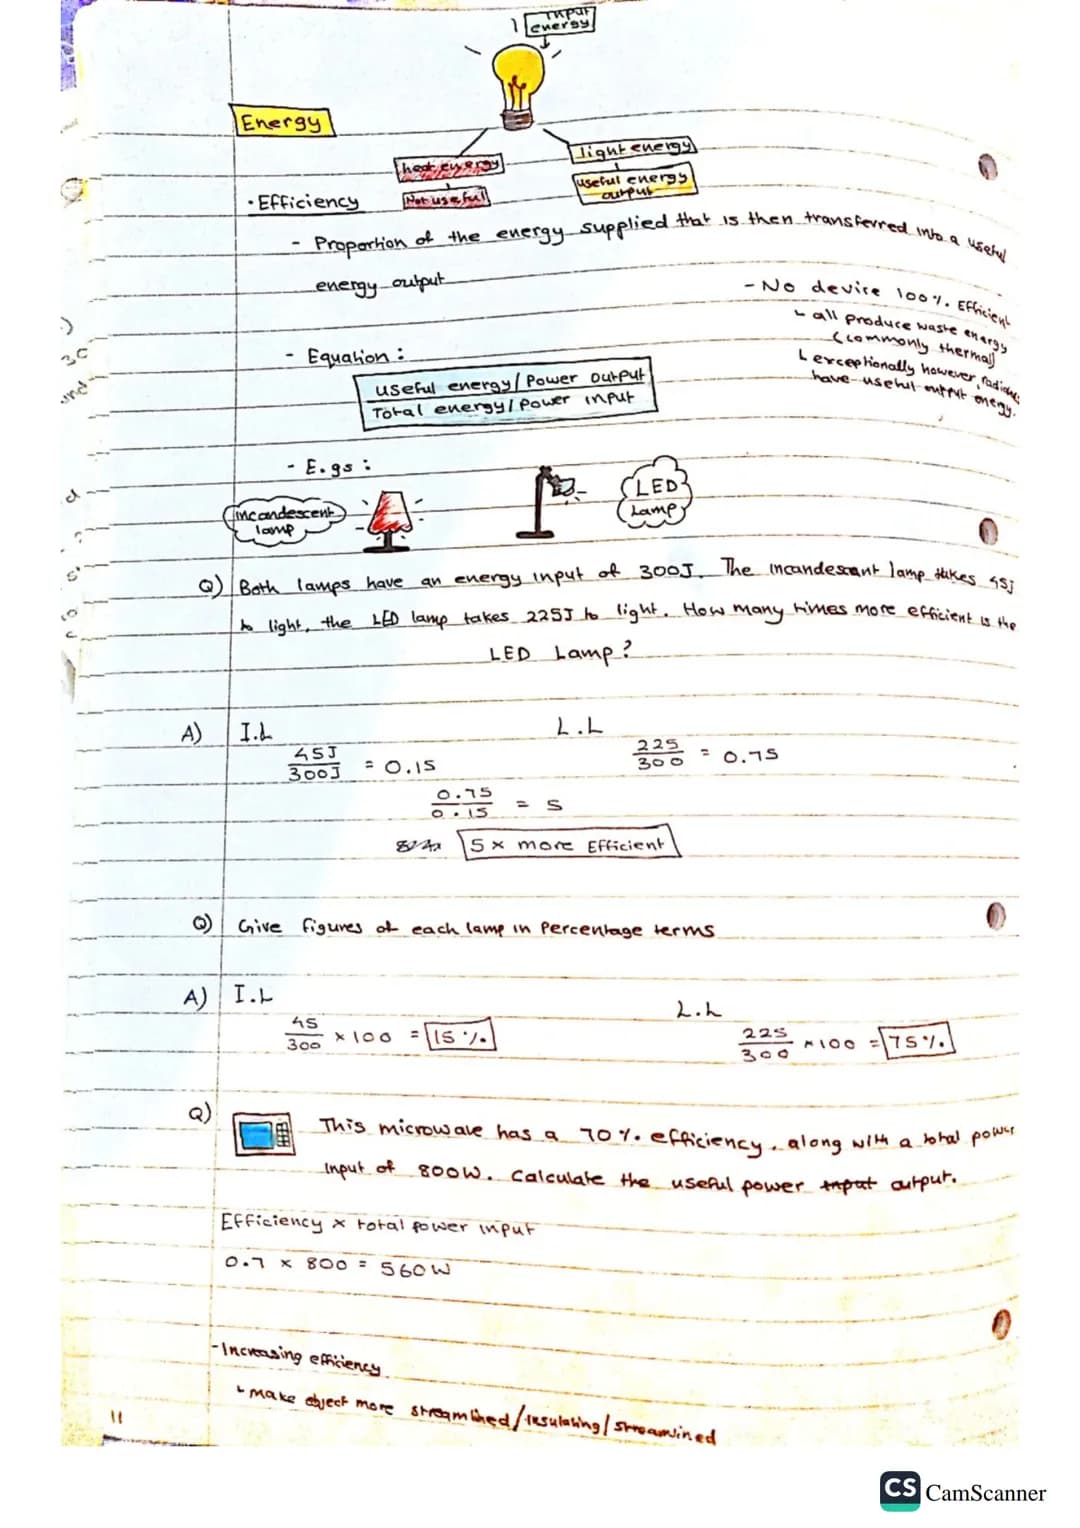 Input
energy
Energy
heat energy
light energy
Not useful
useful energy
output
· Efficiency
- Proportion of the energy supplied that is then transferred into a useful
energy output
- No device 100% Efficient
all produce waste energy
(commonly thermal)
exceptionally however, radiators
have useful output energy.
- Equation :
useful energy/Power Output
Total energy/Power input
- E.gs :
incandescent
lamp
LED
Lamp
Q) Both lamps have an energy input of 300J. The incandescant lamp takes 45J
to light, the LED lamp takes 225J to light. How many times more efficient is the
LED Lamp?
A) I.L
L.L
45J
300J
= 0.15
225
300
= 0.75
0.75
0.15
= 5
5x more Efficient
Q) Give figures of each lamp in Percentage terms
A) I.L
L.L
45
300
x 100 = 15%.
225
300
x 100 = 75%.
Q) This microwave has a 70% efficiency, along with a total power
input of 800W. Calculate the useful power input output.
Efficiency x total power input
0.7 x 800 = 560W
- Increasing efficiency
make object more streamlined/insulating/streamlined
11
CS CamScanner